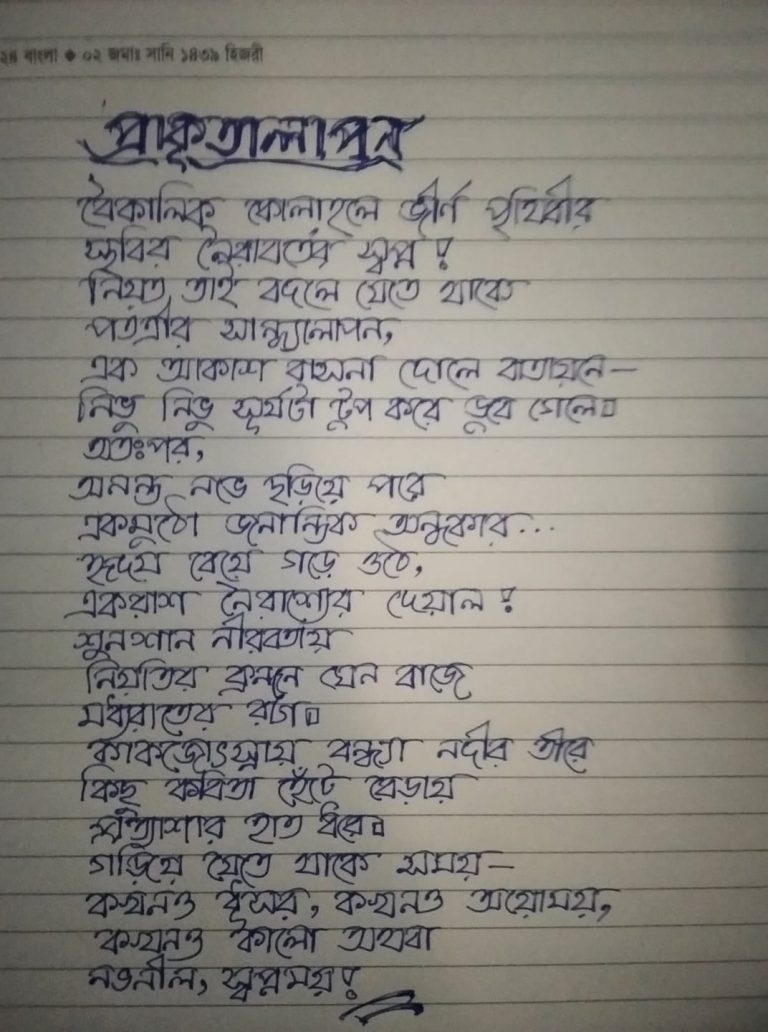 ২৪ বাংলা ◆ ০২ জমাঃ সানি ১৪৩৯ হিজরী
প্রাকৃতালাপন
বৈকালিক কোলাহলে জীর্ণ পৃথিবীর
স্থবির নৈরাবতের স্বপ্ন!
নিয়ত তাই বদলে যেতে থাকে
পতত্রীর সান্ধ্যলোপন,
এক আকাশ বাসনা দোলে বাতায়নে—
নিভু নিভু সূর্যটা টুপ করে ডুবে গেলে৷
অতঃপর,
অনন্ত নভে ছড়িয়ে পরে
একমুঠো জনান্তিক অন্ধকার...
হৃদয় বেয়ে গড়ে ওঠে,
একরাশ নৈরাশ্যের দেয়াল!
শুনশান নীরবতায়
নিয়তির ক্রন্দনে যেন বাজে
মধ্যরাতের রাগ৷
কাকজোৎস্নায় বন্ধ্যা নদীর তীরে
কিছু কবিতা হেঁটে বেড়ায়
প্রত্যাশার হাত ধরে৷
গড়িয়ে যেতে থাকে সময়—
কখনও ধূসর, কখনও অয়োময়,
কখনও কালো অথবা
নভনীল, স্বপ্নময়!